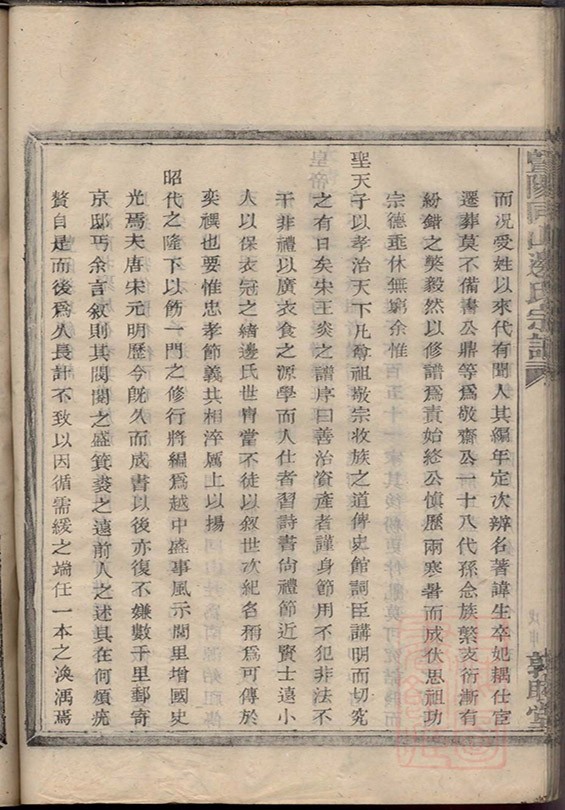 暨陽同山邊氏宗譜
而況受姓以來代有聞人其編年定次辨名著諱生卒妃耦仕宦
遷葬莫不備書公鼎等為敬齋公一十八代孫念族繁衍漸有
紛錯之獘毅然以修譜為責始終公慎歷兩寒暑而成伏思祖功
宗德垂休無窮余惟
聖天子以孝治天下凡尊祖敬宗收族之道俾史館詞臣講明而切究
之有日矣宋王炎之譜序曰善治資產者謹身節用不犯非法不
干非禮以廣衣食之源學而人仕者習詩書尙禮節近賢士遠小
人以保衣冠之緒邊氏世胄當不徒以叙世次紀名稱為可傳於
奕禩也要惟忠孝節義其相淬厲上以揚
昭代之隆下以飭一門之修行將編為越中盛事風示閭里增國史
光焉夫唐宋元明歷今旣久而成書以後亦復不嫌數千里郵寄
京邸丐余言叙則其閥閱之盛箕裘之遠前人之述其在何煩疣
贅自是而後為久長計不致以因循需緩之端任一本之渙渪焉
戊申
敦睦堂